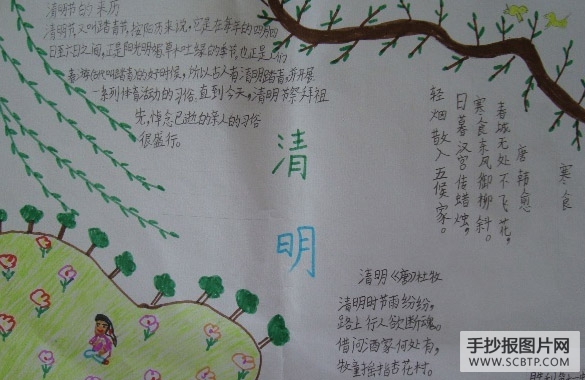 清明节的来历
清明节又叫踏青节,按阳历来说,它是在每年的四月四
日至六日之间,正是阳光明媚草木吐绿的季节,也正是人们
春游(古代叫踏青)的好时候,所以古人有清明踏青,并开展
一系列体育活动的习俗。直到今天,清明节祭拜祖
先,悼念已逝的亲人的习俗
很盛行。
清
明
寒食
唐 韩愈
春城无处不飞花,
寒食东风御柳斜。
日暮汉宫传蜡烛,
轻烟散入五候家。
清明《唐》杜牧
清明时节雨纷纷,
路上行人欲断魂。
借问酒家何处有,
牧童摇指杏花村。
手抄报图片网
WWW.SCBTP.COM